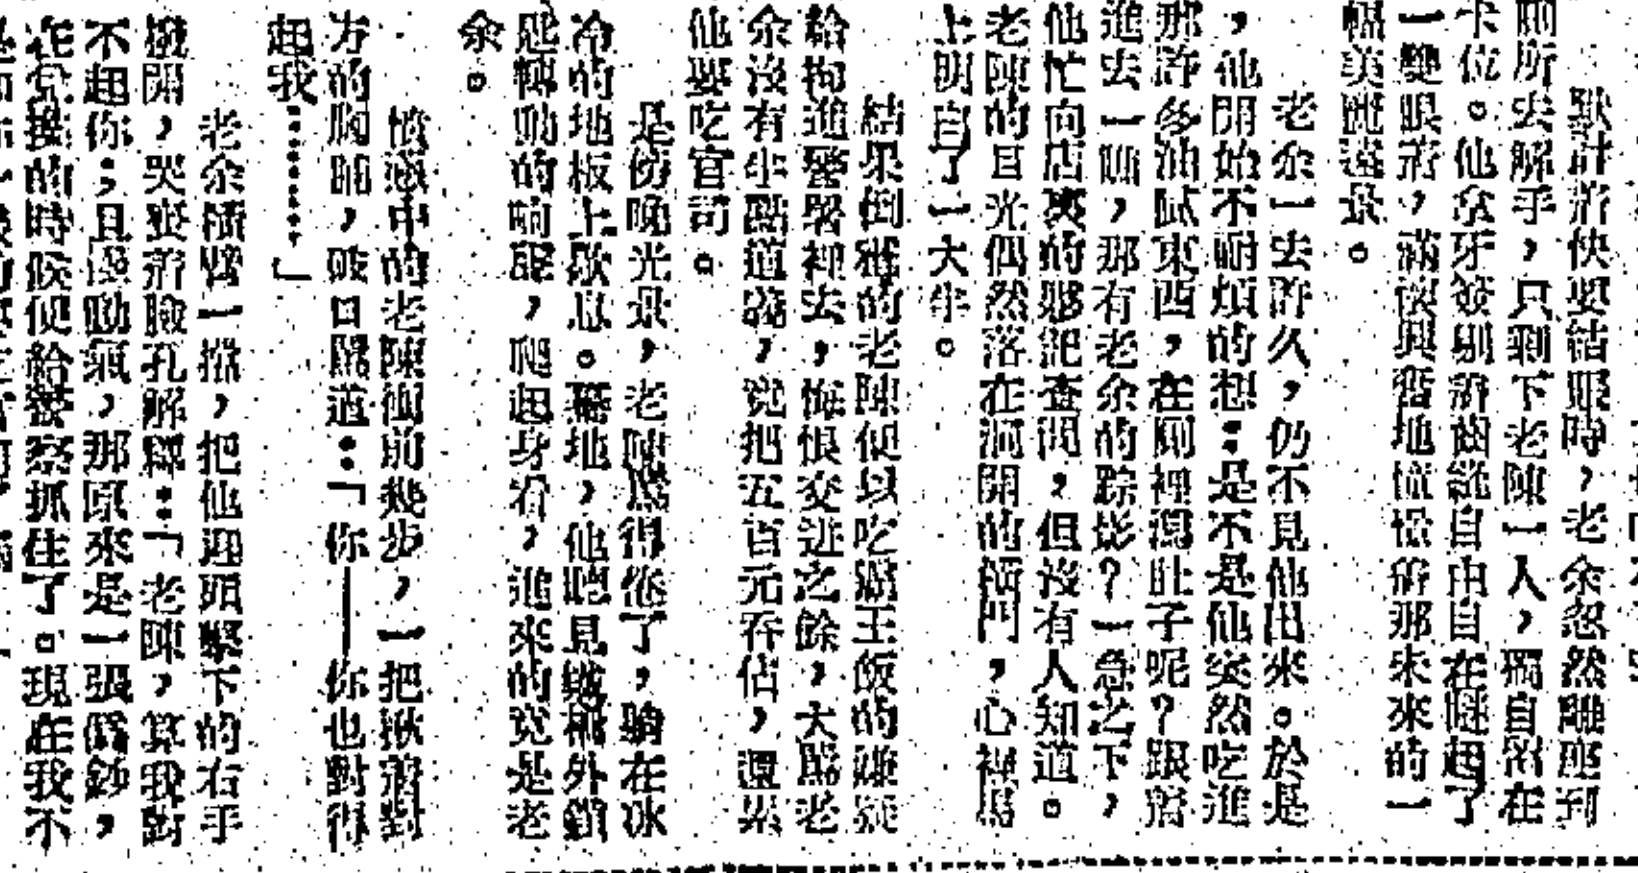 默計着快要結賬時，老余忽然離座到
厠所去解手，只剩下老陳一人，獨自留在
卡位。他拿牙簽剔着齒，自由自在
一雙眼睛，滿懷興奮地憧憬着那未來的一
幅美麗遠景。
老余一去許久，仍不見他出來。於是
，他開始不耐煩的想：是不是他突然吃進
那許多油膩東西，在厠裡瀉肚子呢？跟着
進去一瞧，那有老余的踪影？一急之下，
他忙向店裏的夥記查問，但沒有人知道。
老陳的目光偶然落在洞開的橫門，心裡馬
上明白了一大半。
結果倒楣的老陳便以吃霸王飯的嫌疑
給拘進警署裡去，悔恨交迸之餘，大罵老
余沒有半點道義，竟把五百元吞佔，還累
他要吃官司。
是傍晚光景，老陳罵得倦了，躺在冰
冷的地板上歇息。驀地，他聽見鐵柵外鎖
匙轉動的响聲，爬起身看，進來的竟是老
余。
憤怒中的老陳衝前幾步，一把揪着對
方的胸脯，破口罵道：「你——你也對得
起我………」
老余橫臂一擋，把他迎頭擊下的右手
撥開，哭喪着臉孔解釋：「老陳，算我對
不起你；且慢動氣，那原來是一張僞鈔，
在兌換的時候便給警察抓住了。現在我不